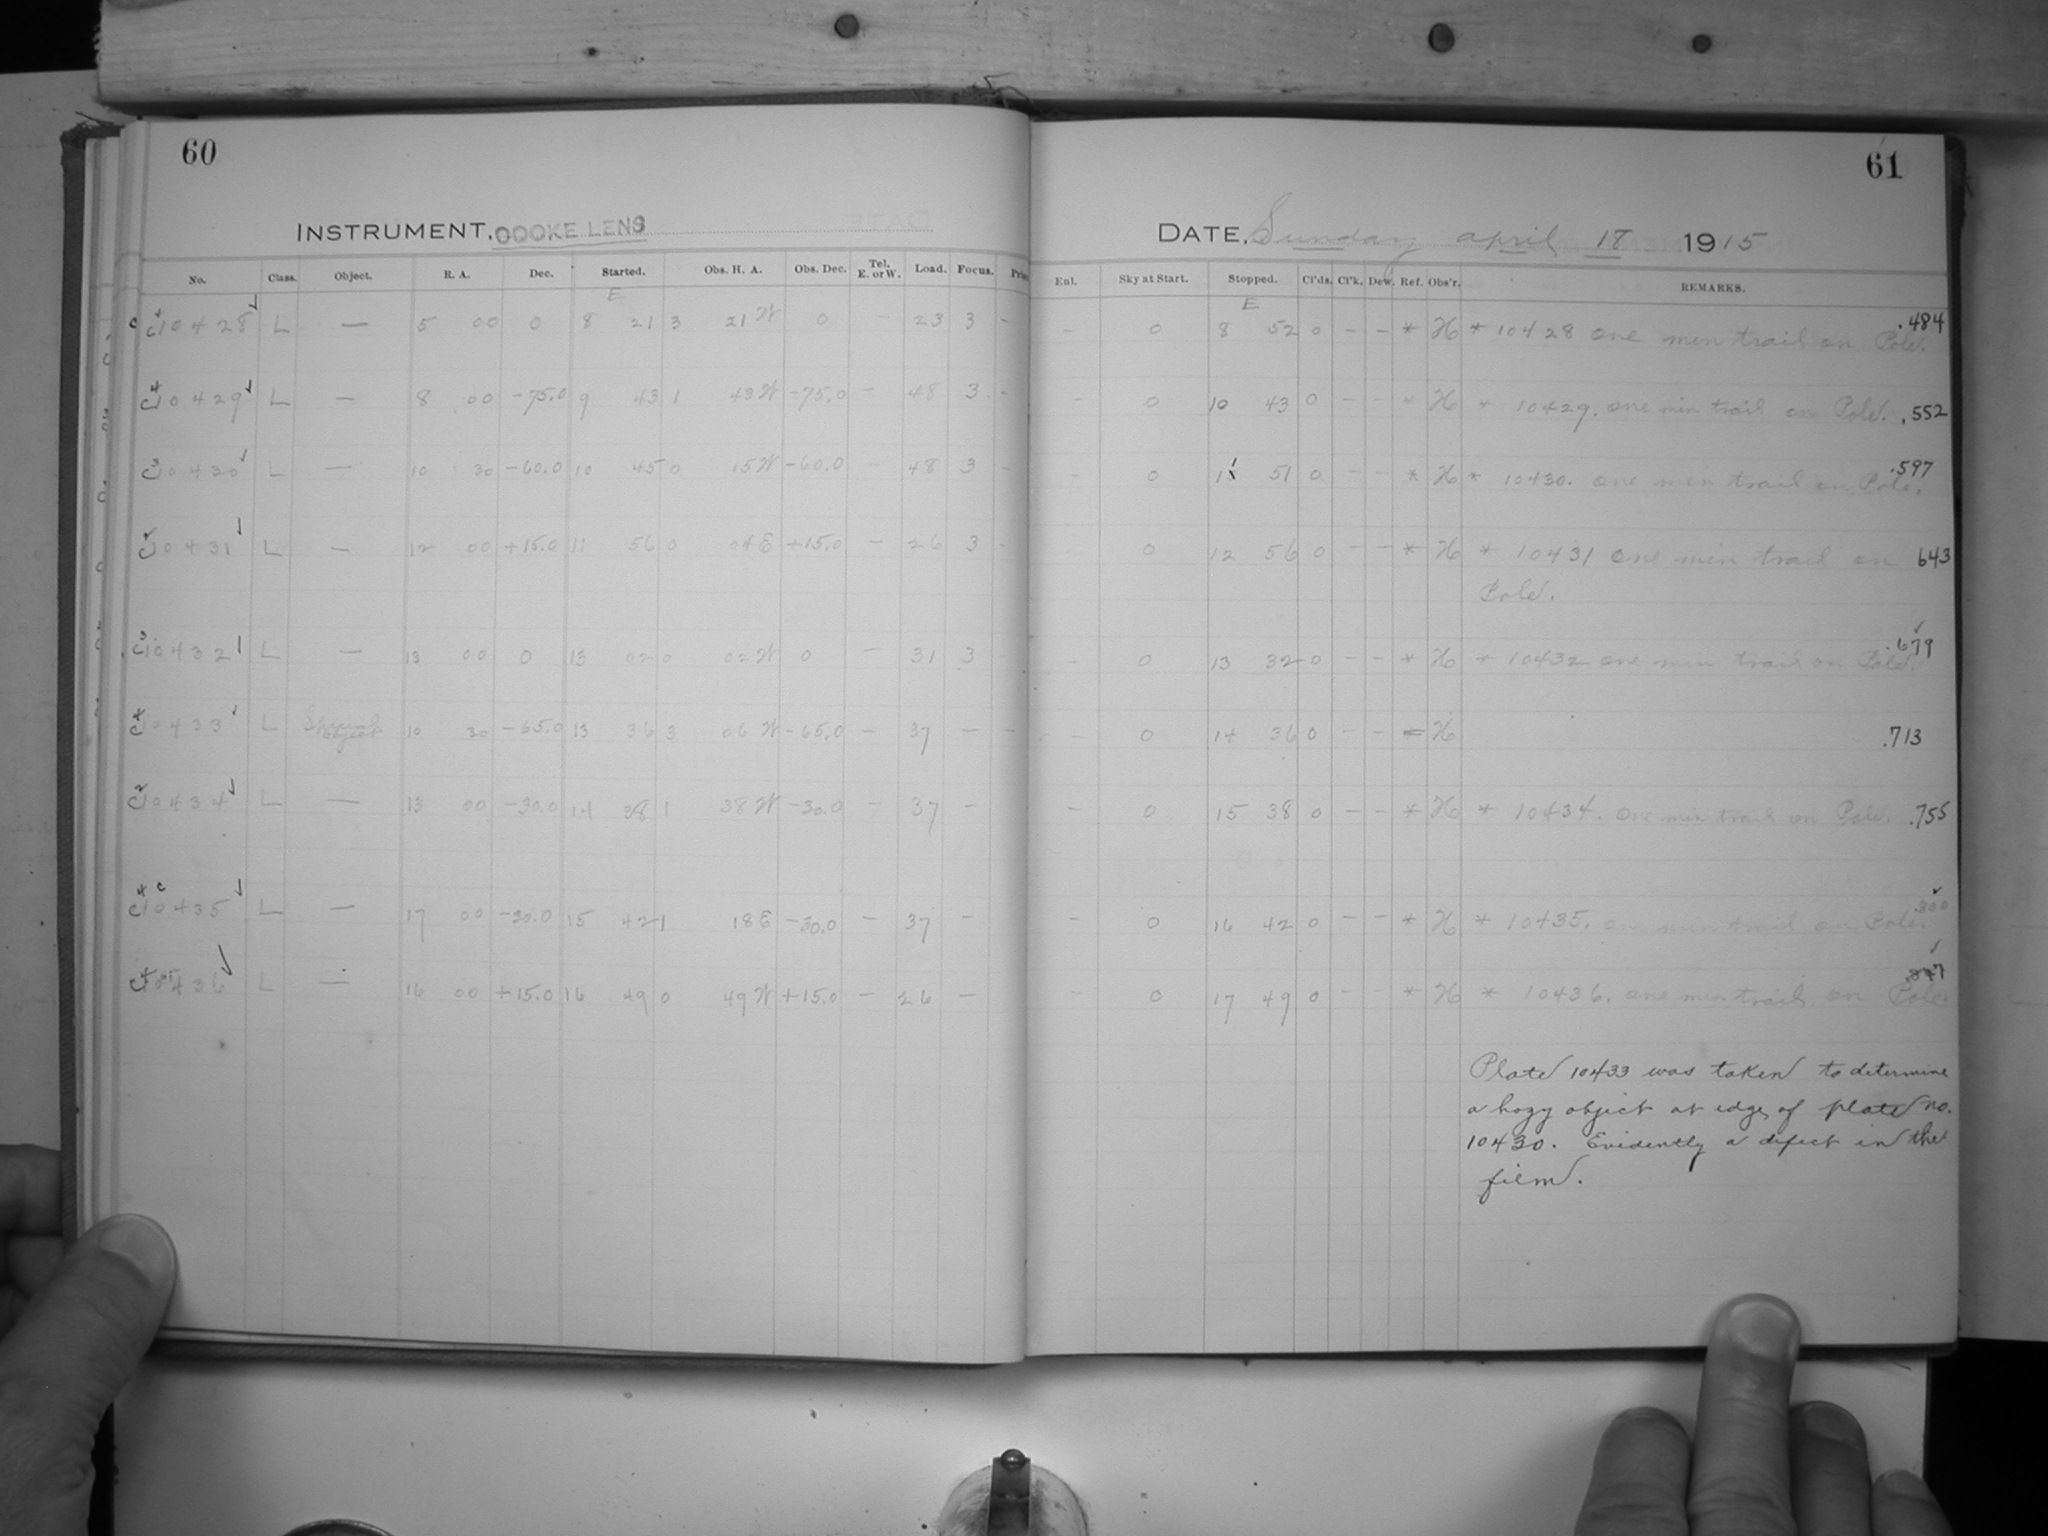 60
61
INSTRUMENT. COOKE LENS
DATE. Sunday april 18 1915
No. Class. Object. R. A. Dec. Started. Obs. H. A. Obs. Dec. Tel. E. or W. Load. Focus.
Enl. Sky at Start. Stopped. Cl'ds. Cl'k. Dew. Ref. Obs'r. REMARKS.
E
E
C10428 L — 5 00 0 8 21 3 21 W 0 — 23 3 - - 0 8 52 0 - - * H * 10428 one min trail on Pole. .484
C10429 L — 8 00 -75.0 9 43 1 43 W -75.0 - 48 3 - - 0 10 43 0 - - * H * 10429. one min trail on Pole. .552
C10430 L — 10 30 -60.0 10 45 0 15 W -60.0 - 48 3 - 0 11 51 0 - - * H * 10430. one min trail on Pole. .597
C10431 L — 12 00 +15.0 11 56 0 04 E +15.0 — 26 3 - 0 12 56 0 - - * H * 10431 one min trail on 643
Pole.
C10432 L — 13 00 0 13 02 0 02 W 0 — 31 3 - - 0 13 32 0 - - * H * 10432 one min trail on Pole. .679
C10433 L Special object 10 30 -65.0 13 36 3 06 W -65.0 — 37 — - - 0 14 36 0 - - - H .713
C10434 L — 13 00 -30.0 14 38 1 38 W -30.0 - 37 - - 0 15 38 0 - - * H * 10434. one min trail on Pole. .755
C10435 L — 17 00 -30.0 15 42 1 18 E -30.0 — 37 - - 0 16 42 0 - - * H * 10435. one min trail on Pole.
C10436 L — 16 00 +15.0 16 49 0 49 W +15.0 — 26 — - 0 17 49 0 - - * H * 10436. one min trail on Pole.
Plate 10433 was taken to determine
a hazy object at edge of plate no.
10430. Evidently a defect in the
film.